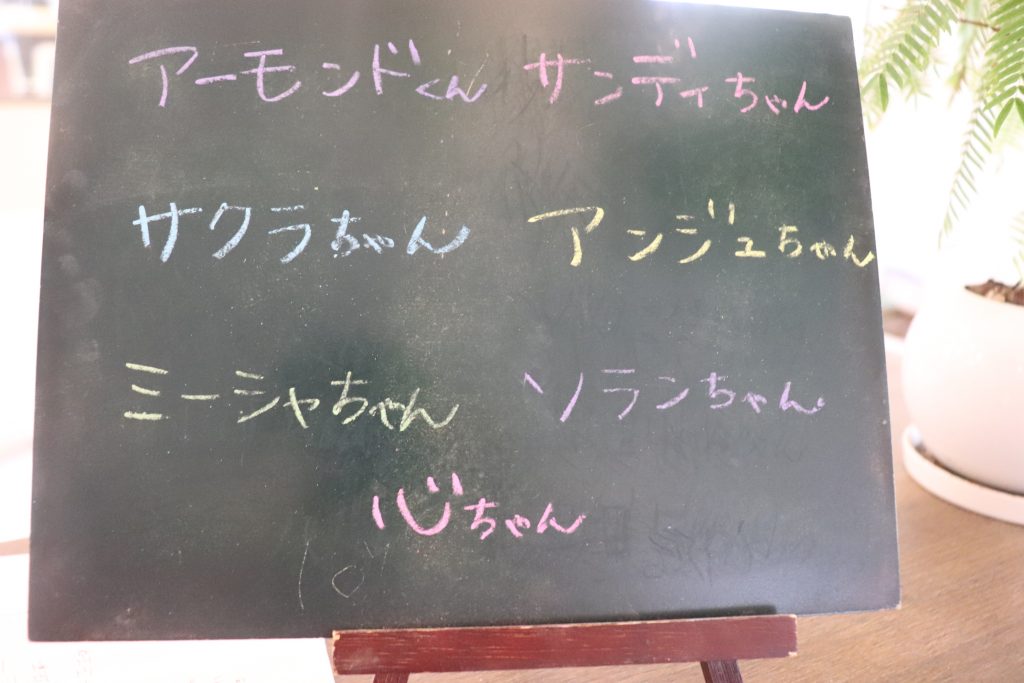 アーモンドくん サンディちゃん
サクラちゃん アンジュちゃん
ミーシャちゃん ソランちゃん
心ちゃん